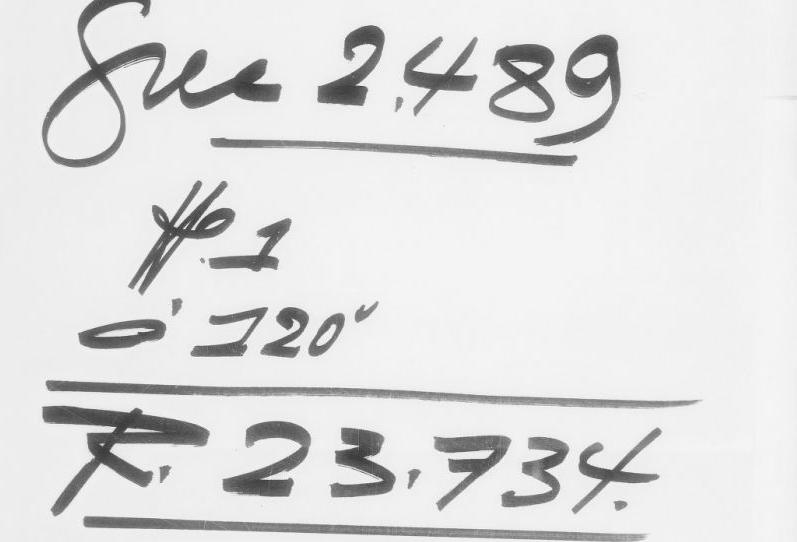 Sue 2.489
#.1
0' 120"
R. 23.734.